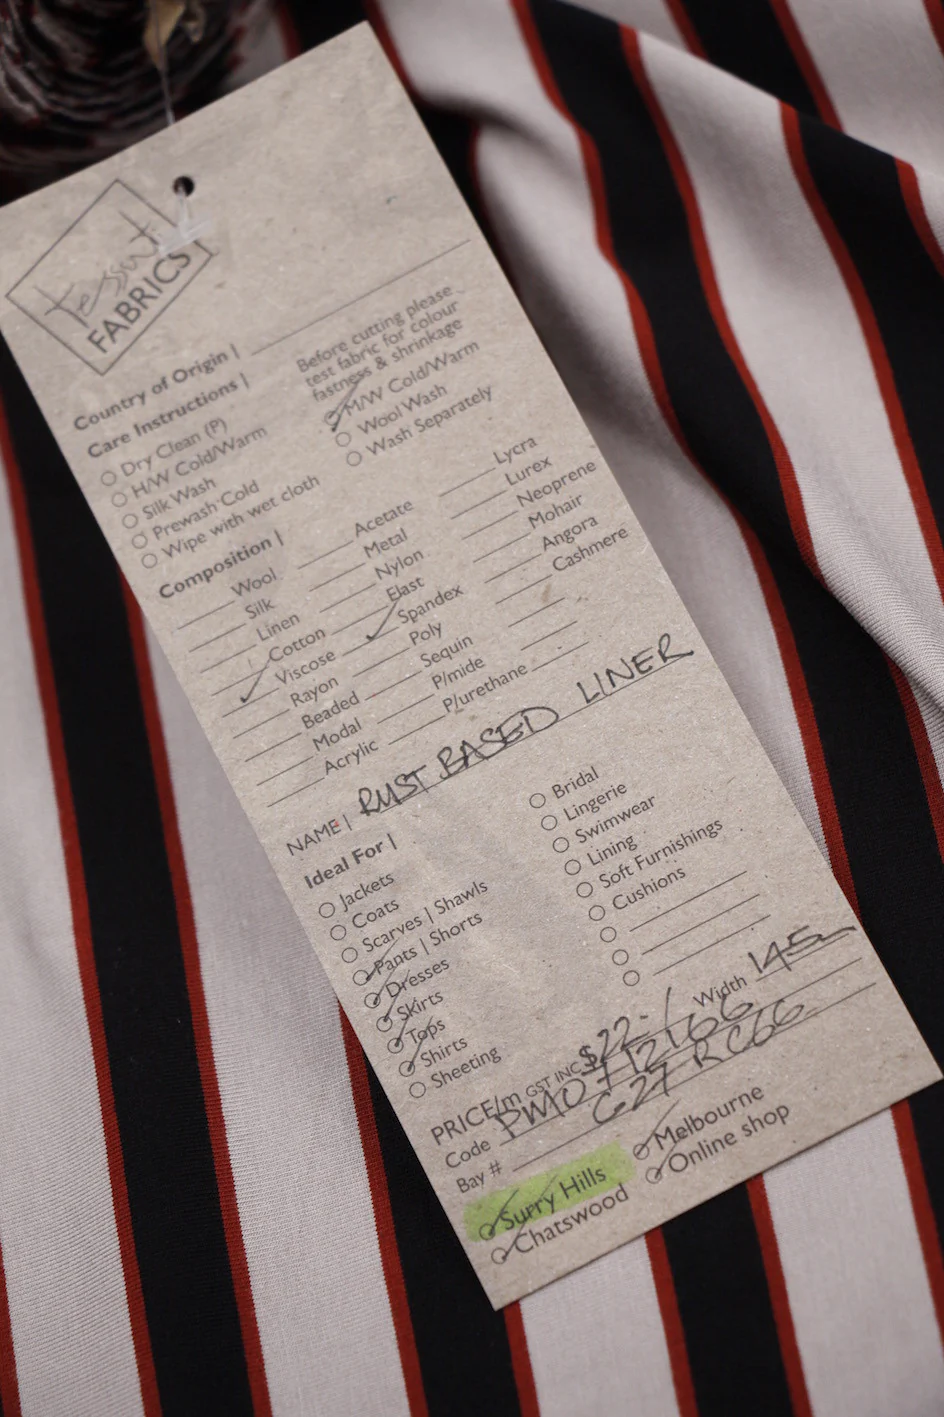 tessuti
FABRICS
Country of Origin |
Care Instructions |
Before cutting please
test fabric for colour
fastness & shrinkage
Dry Clean (P)
H/W Cold/Warm
Silk Wash
Prewash Cold
Wipe with wet cloth
M/W Cold/Warm
Wool Wash
Wash Separately
Composition |
Wool
Silk
Linen
Cotton
Viscose
Rayon
Beaded
Modal
Acrylic
Acetate
Metal
Nylon
Elast
Spandex
Poly
Sequin
P/mide
P/urethane
Lycra
Lurex
Neoprene
Mohair
Angora
Cashmere
NAME | RUST BASED LINER
Ideal For |
Jackets
Coats
Scarves | Shawls
Pants | Shorts
Dresses
Skirts
Tops
Shirts
Sheeting
Bridal
Lingerie
Swimwear
Lining
Soft Furnishings
Cushions
PRICE/m GST INC $22.-/ Width 145
Code PW0712166
Bay # C27 RC66
Surry Hills
Chatswood
Melbourne
Online shop